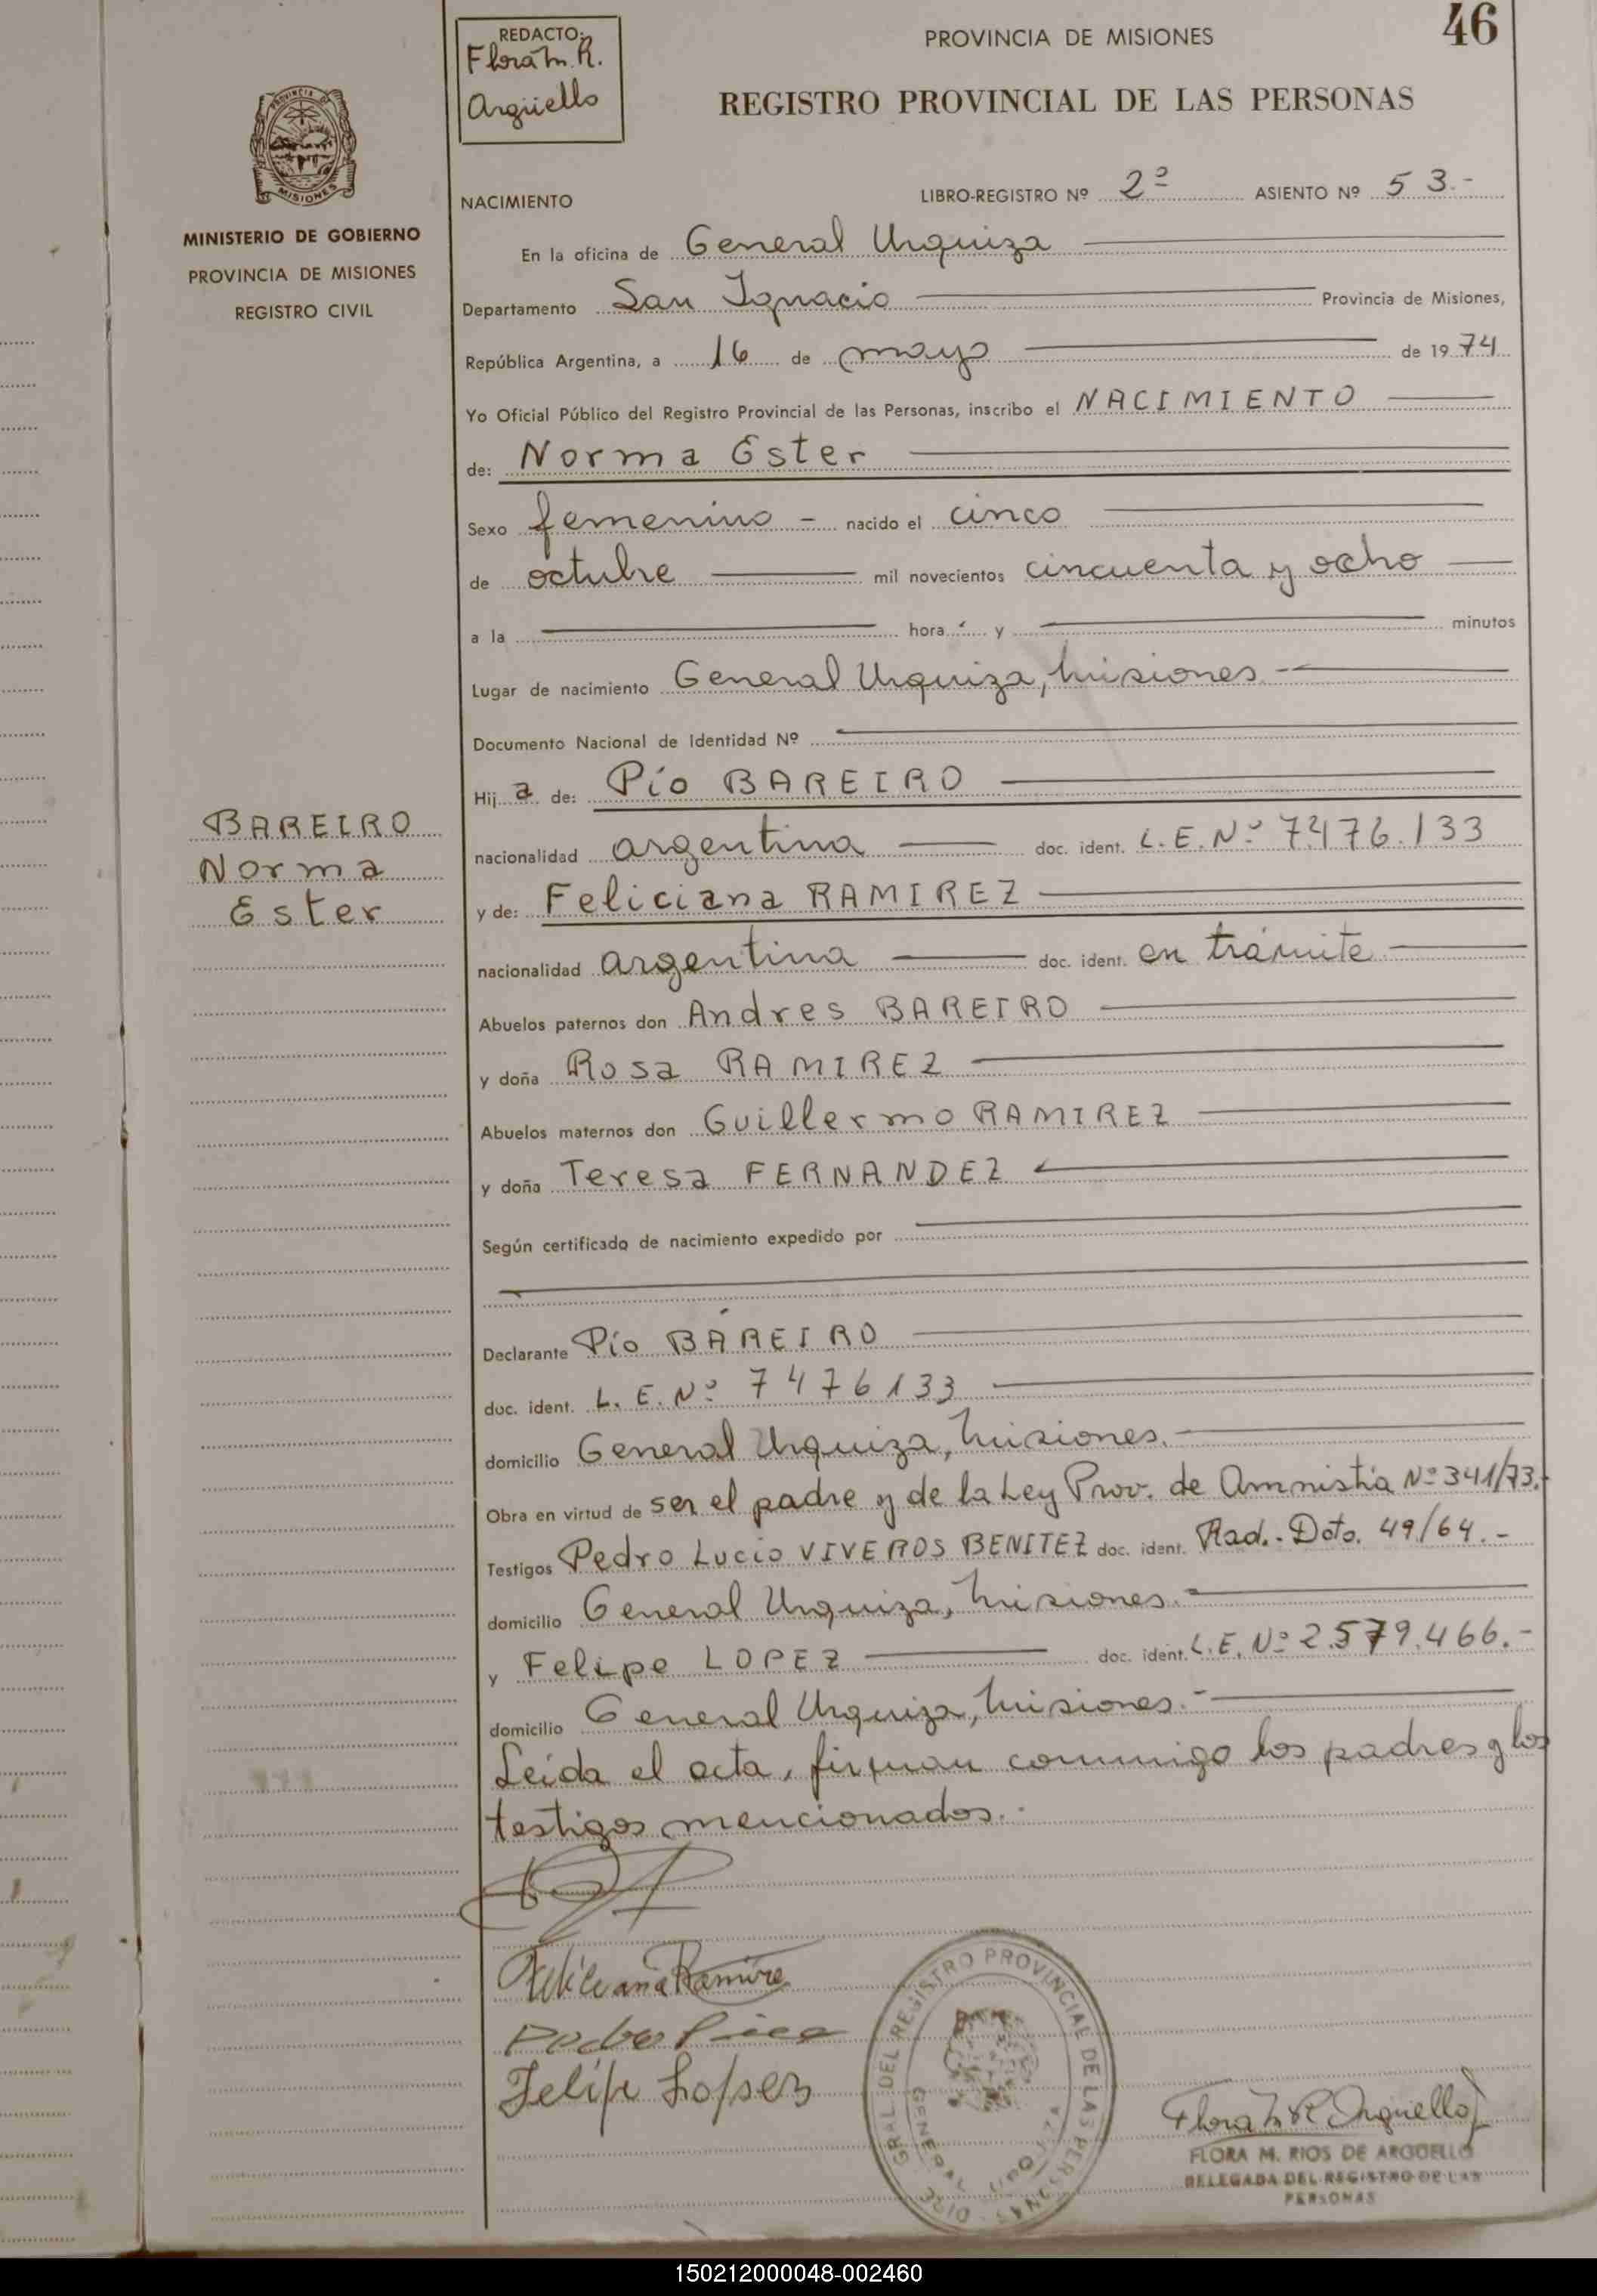 46
REDACTO:
Flora M. R.
Argüello
PROVINCIA DE MISIONES
REGISTRO PROVINCIAL DE LAS PERSONAS
PROVINCIA DE
MISIONES
MINISTERIO DE GOBIERNO
PROVINCIA DE MISIONES
REGISTRO CIVIL
NACIMIENTO LIBRO-REGISTRO Nº 2º ASIENTO Nº 53.-
En la oficina de General Urquiza
Departamento San Ignacio Provincia de Misiones,
República Argentina, a 16 de mayo de 1974
Yo Oficial Público del Registro Provincial de las Personas, inscribo el NACIMIENTO
de: Norma Ester
Sexo femenino - nacido el cinco
de octubre mil novecientos cincuenta y ocho
a la hora y minutos
Lugar de nacimiento General Urquiza, Misiones.-
Documento Nacional de Identidad Nº
Hija de: Pío BAREIRO
nacionalidad argentina doc. ident. L.E.Nº 7.476.133
y de: Feliciana RAMIREZ
nacionalidad argentina doc. ident. en trámite
Abuelos paternos don Andres BAREIRO
y doña Rosa RAMIREZ
Abuelos maternos don Guillermo RAMIREZ
y doña Teresa FERNANDEZ
Según certificado de nacimiento expedido por
Declarante Pío BAREIRO
doc. ident. L.E.Nº 7476133
domicilio General Urquiza, Misiones.-
Obra en virtud de ser el padre y de la Ley Prov. de Amnistía Nº 341/73.-
Testigos Pedro Lucio VIVEROS BENITEZ doc. ident. Rad.- Dto. 49/64.-
domicilio General Urquiza, Misiones.-
y Felipe LOPEZ doc. ident. L.E.Nº 2.579.466.-
domicilio General Urquiza, Misiones.-
Leída el acta, firman conmigo los padres y los
testigos mencionados.-
BAREIRO
Norma
Ester
Feliciana Ramire
Felipe Lopez
DIRE. GRAL. DEL REGISTRO PROVINCIAL DE LAS PERSONAS
Flora M R Arguello
FLORA M. RIOS DE ARGUELLO
DELEGADA DEL REGISTRO DE LAS
PERSONAS
150212000048-002460